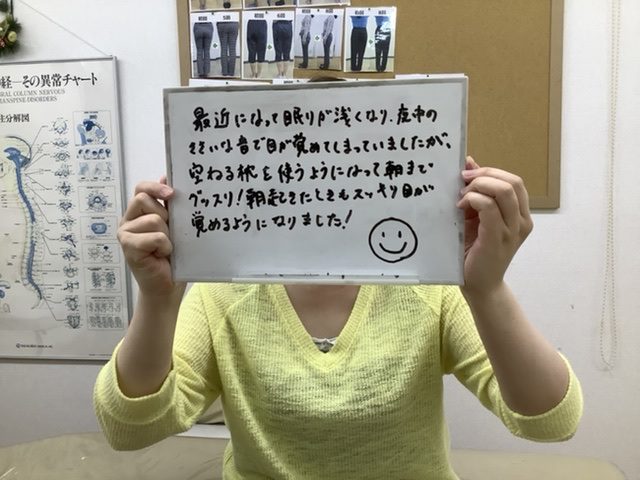 経―その異常チャート
RAL COLUMN NERVOUS
ANSPINE DISORDERS
主分解図
最近になって眠りが浅くなり、夜中の
ささいな音で目が覚めてしまっていましたが、
空ねる枕を使うようになって朝まで
グッスリ!朝起きたときもスッキリ目が
覚めるようになりました!